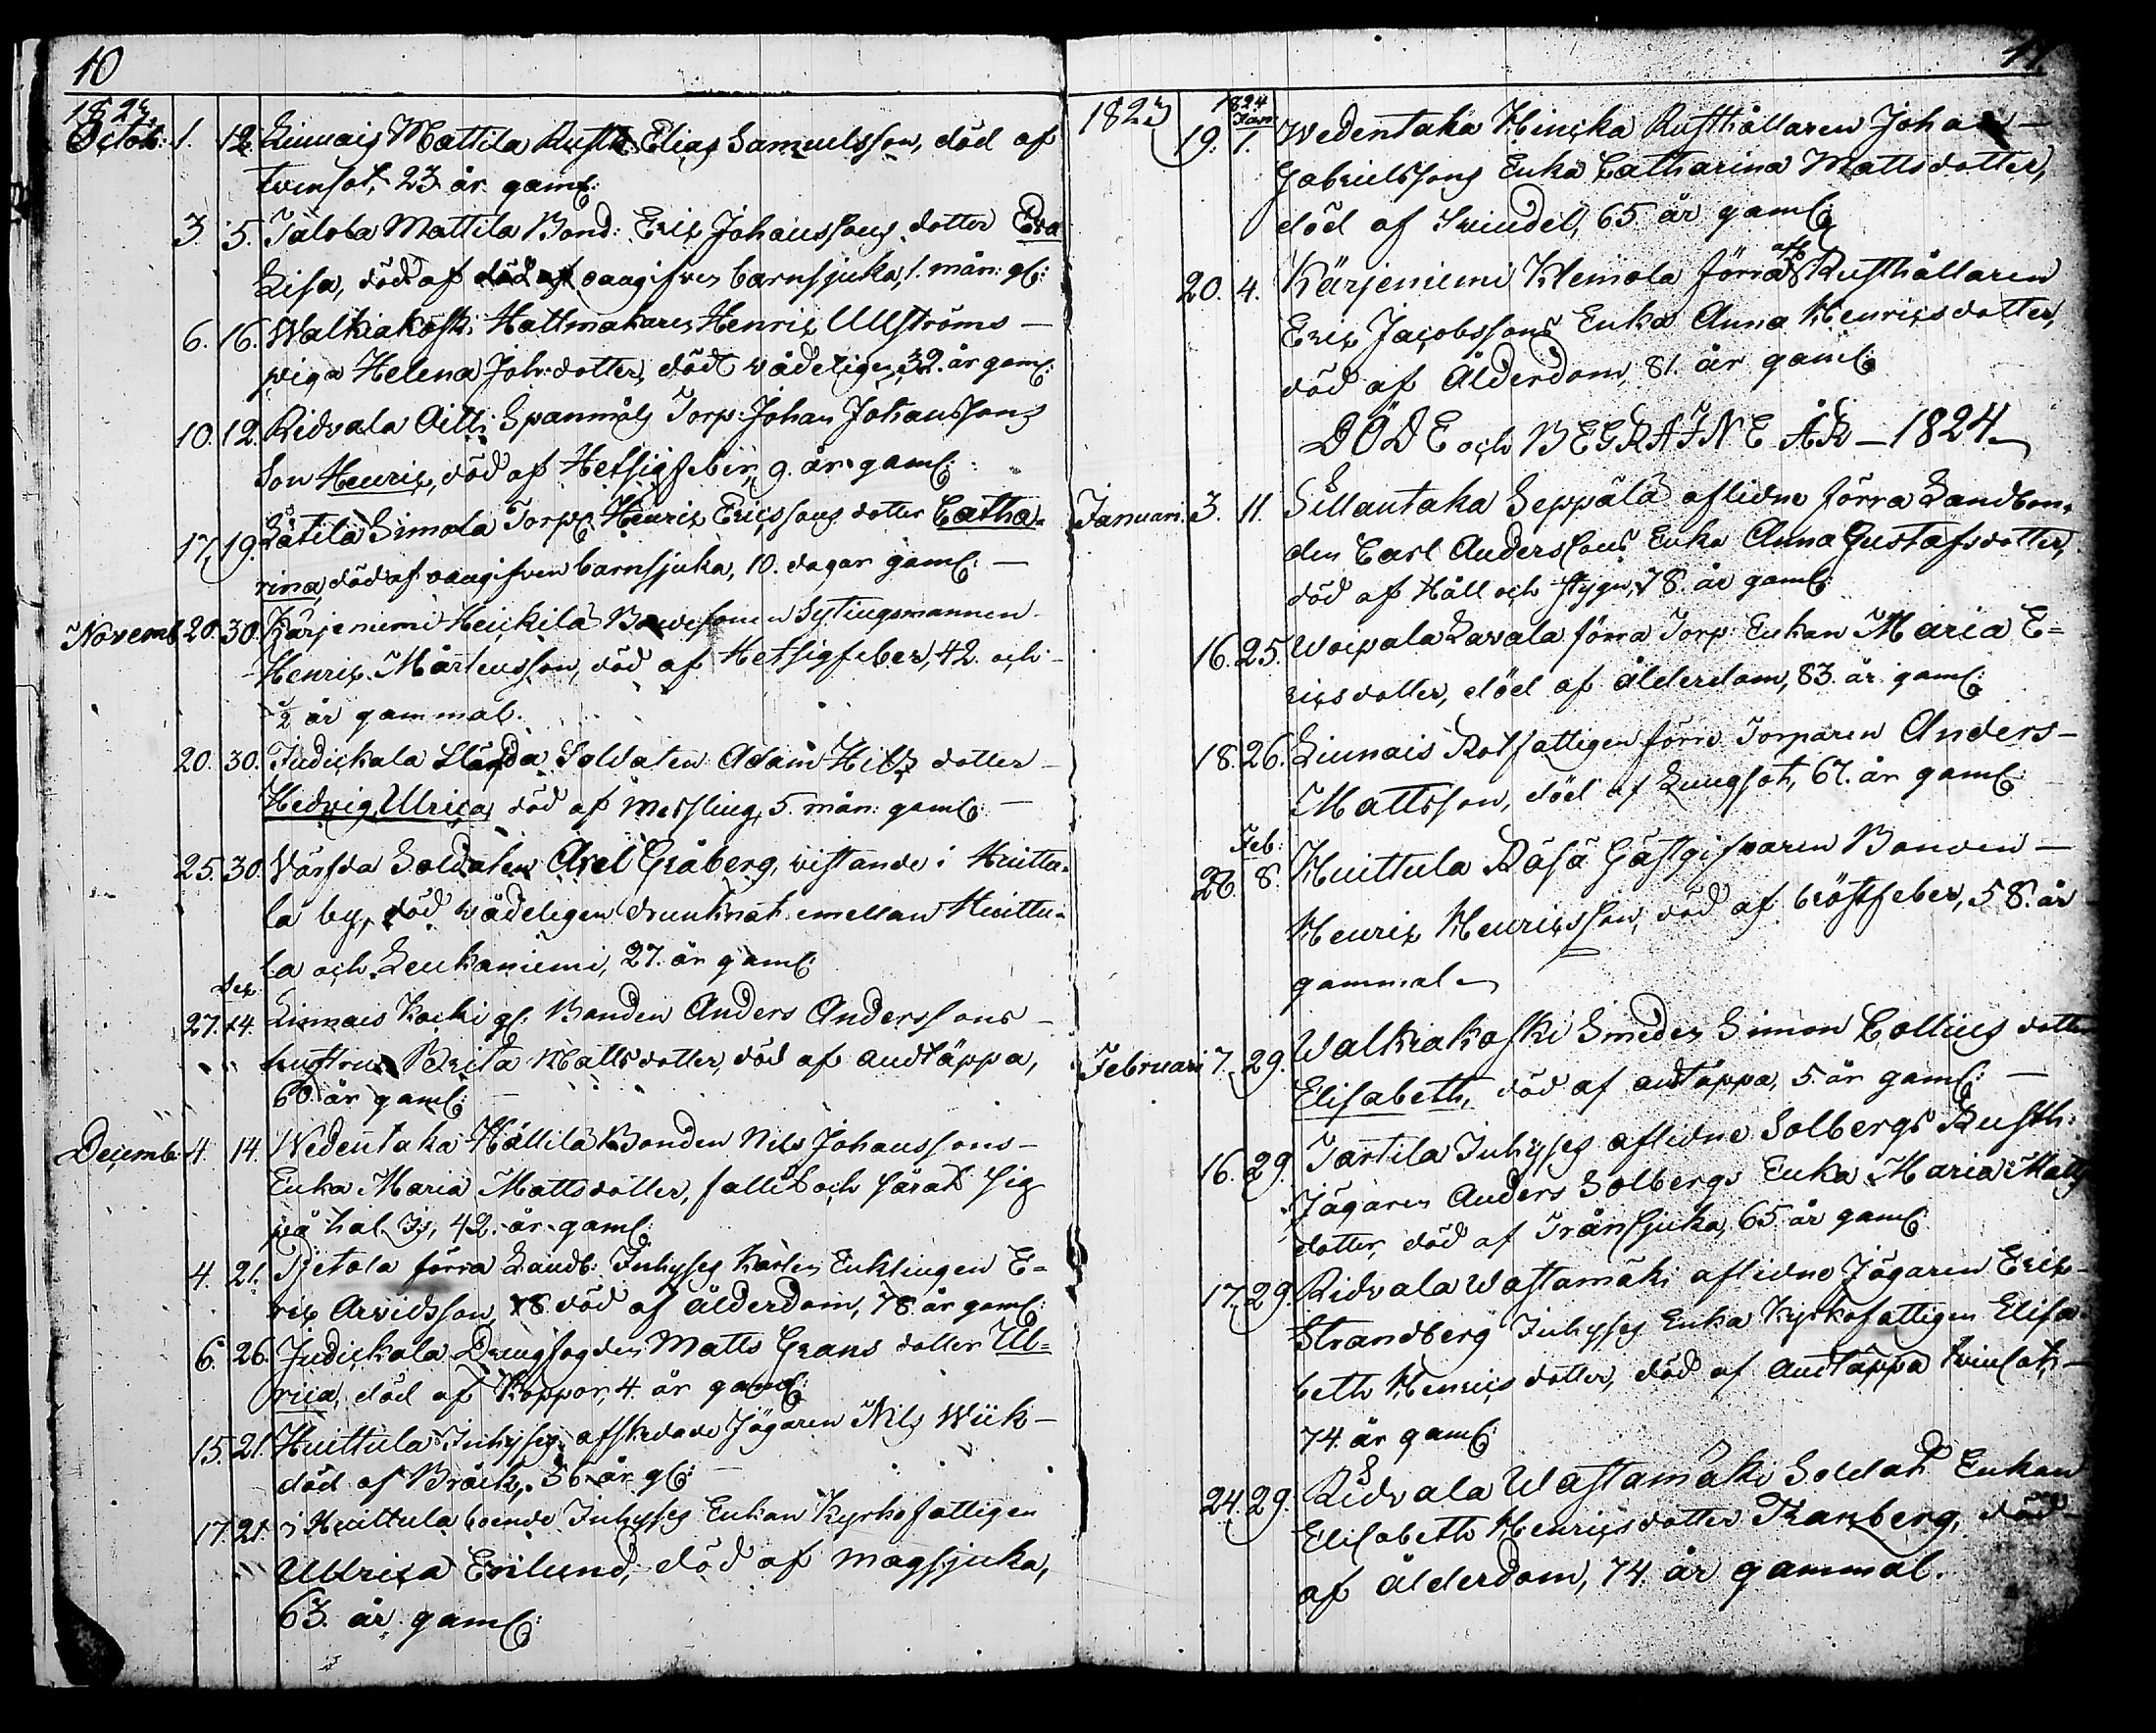 10
1823
Octob: 1. 12. Linnais Mattila Rusth: Elias Samuelsson, död af
tvinsot, 23 år gaml:
3. 5. Jälola Mattila Bond: Eric Johanssons dotter Eva
Lisa, död af död af oangifven barnsjuka, 1. mån: gl:
6. 16. Walkiakoski Hattmakaren Henric Ullströms —
piga Helena Joh:dotter, död vådeligen, 32. år gaml:
10. 12. Ridvala Aitti Spanmåls Torp: Johan Johanssons
Son Henric, död af Hetsigfeber, 9. år gaml:
17. 19. Lötilä Simola Torp: Henric Ericssons dotter Catha-
rina, död af oangifven barnsjuka, 10. dagar gaml: —
Novemb: 20. 30. Kärjeniemi Heickilä Bondesonen Sytingsmannen
Henric Mårtensson, död af Hetsigfeber, 42. och —
1/2 år gammal.
20. 30. Judickala Slända Soldaten Adam Hilz dotter —
Hedvig Ulrica, död af Messling, 5. mån: gaml: —
25. 30. Värfda Soldaten Axel Gråberg, vistande i Huittu-
la by, död vådeligen drunknat emellan Huittu-
la och Leukaniemi, 27. år gaml:
Dec.
27. 14. Linnais Kocki gl: Bonden Anders Anderssons —
hustru Brita Mattsdotter, död af andtäppa,
60. år gaml: —
Decemb: 4. 14. Wedentaka Hällilä Bonden Nils Johanssons —
Enka Maria Mattsdotter, fallit och sårat sig
på hal Is, 42. år gaml:
4. 21. Pjetola förra Landb: Inhyses Karlen Enklingen E-
ric Arvidsson, 78 död af ålderdom, 78. år gaml:
6. 26. Judickala Drengfogden Matts Grans dotter Ul-
rica, död af Koppor, 4. år gaml:
15. 21. Huittula Inhyses afskedade Jägaren Nils Wiik —
död af Bråck, 56. år gl: —
17. 21. i Huittula boende Inhyses Enkan Kyrkofattigen
Ullrica Enlund, död af magsjuka,
63. år gaml:
11
1823 1824 Jan:
19. 1. Wedentaka Hincka Rusthållaren Johan —
Gabrielssons Enka Catharina Mattsdotter,
död af Svindel, 65 år gaml:
20. 4. Kärjeniemi Klemola förra afl: Rusthållaren
Eric Jacobssons Enka Anna Henricsdotter,
död af Ålderdom, 81. år gaml:
DÖDE och BEGRAFNE ÅR — 1824 —
Januari. 3. 11. Sillantaka Seppälä aflidne förra Landbon-
den Carl Anderssons Enka Anna Gustafsdotter,
död af Håll och styng, 78. år gaml:
16. 25. Woipala Lavala förra Torp: Enkan Maria E=
ricsdotter, död af ålderdom, 83. år gaml:
18. 26. Linnais Rotfattigen förre Torparen Anders —
Mattsson, död af Lungsot, 67. år gaml:
Feb:
26. 8. Huittula Räsä Gästgifvaren Bonden —
Henric Henricsson, död af bröstfeber, 58. år
gammal —
Februari 7. 29. Walkiakoski Smeden Simon Collins dotter
Elisabeth, död af andtäppa, 5. år gaml: —
16. 29. Tartila Inhyses aflidne Solbergs Rusth:
Jägaren Anders Solbergs Enka Maria Matts
dotter, död af Trånsjuka, 65 år gaml:
17. 29. Ridvala Wastamäki aflidne Jägaren Eric —
Strandberg Inhyses Enka Kyrkofattigen Elisa
beth Henricsdotter, död af Andtäppa tvinsot, —
74. år gaml:
24. 29. Ridvala Wastamäki Soldat Enkan
Elisabeth Henricsdotter Ranberg, död —
af ålderdom, 74. år gammal.